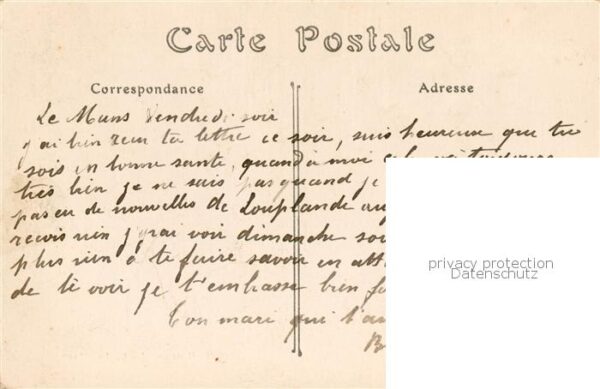 Carte Postale
Correspondance
Adresse
Le Mans Vendredi soir
j'ai bien reçu ta lettre ce soir, suis heureux que tu
sois en bonne santé, quand à moi cela va toujours
tres bien je ne sais pas quand je
pas eu de nouvelles de Louplande
recois rien j'irai voir dimanche
plus rien à te faire savoir en
de te voir je t'embrasse bien
Ton mari qui t'
privacy protection
Datenschutz